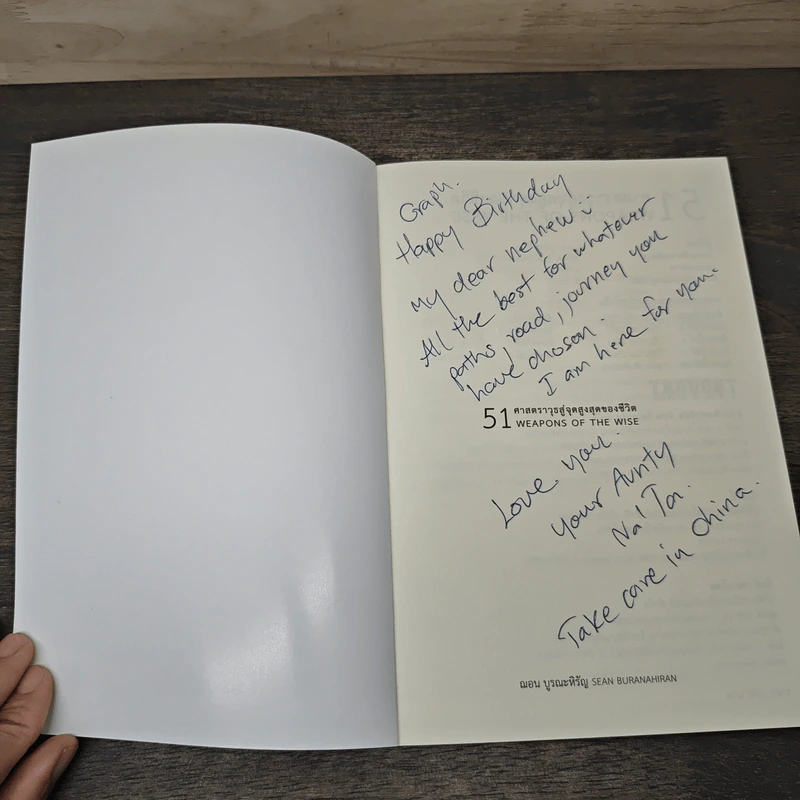 Graph.
Happy Birthday
my dear nephew :)
All the best for whatever
paths, road, journey you
have chosen.
I am here for you.
51 ศาสตราวุธสู่จุดสูงสุดของชีวิต
WEAPONS OF THE WISE
Love you.
your Aunty
Na' Ton.
Take care in China.
ฌอน บูรณะหิรัญ SEAN BURANAHIRAN